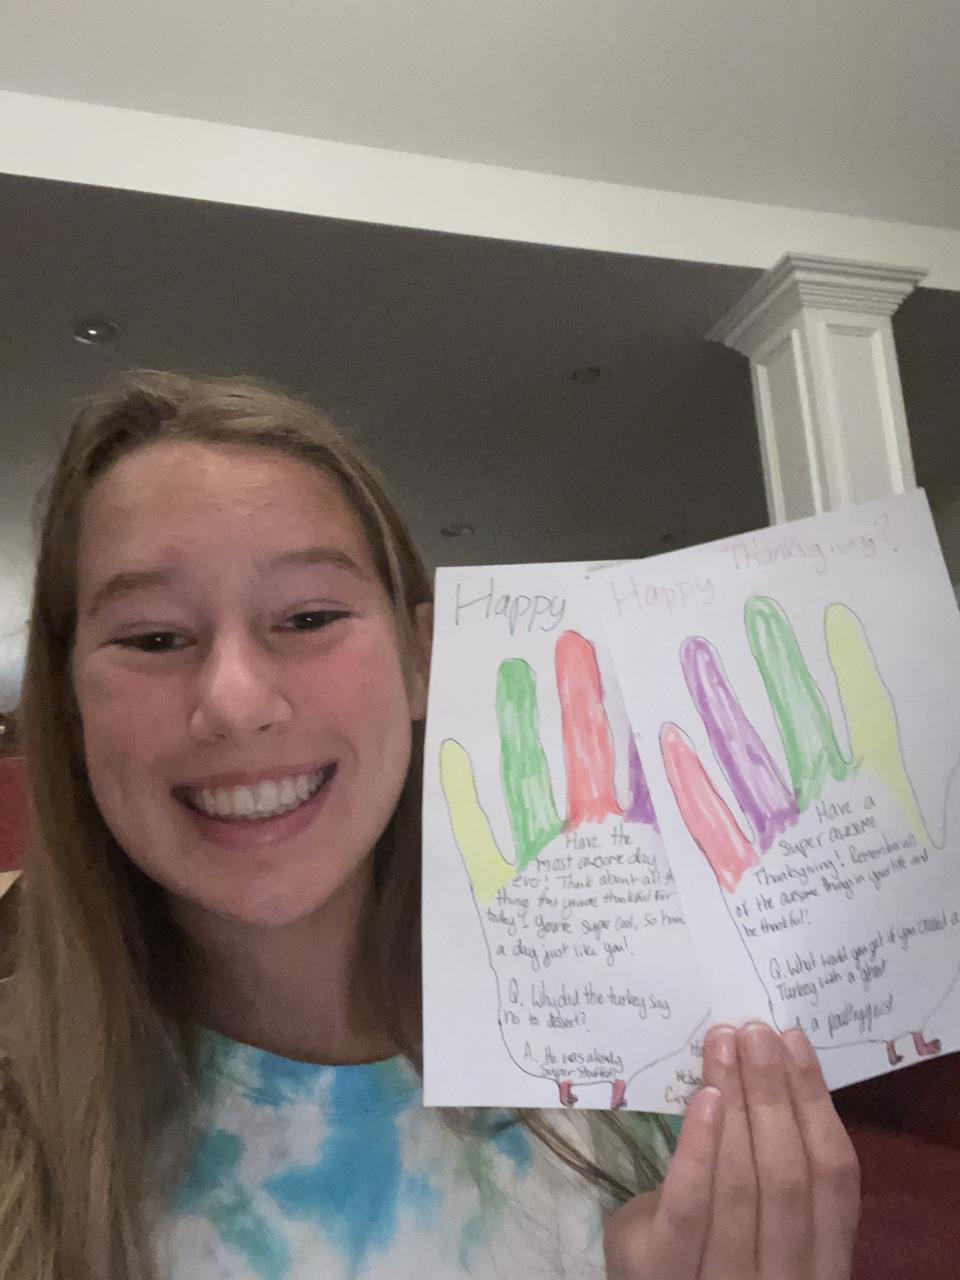 Happy
Have the
most awsome day
ever! Think about all th
things that you're thankful for
today! You're super cool, so have
a day just like you!
Q. Why did the turkey say
no to desert?
A. He was already
super stuffed!
Happy Thanksgiving!
Have a
super awesome
Thanksgiving! Remember all
of the awsome things in your life and
be thankful!
Q. What would you get if you crossed a
Turkey with a ghost
A. a poultrygeist
Ha